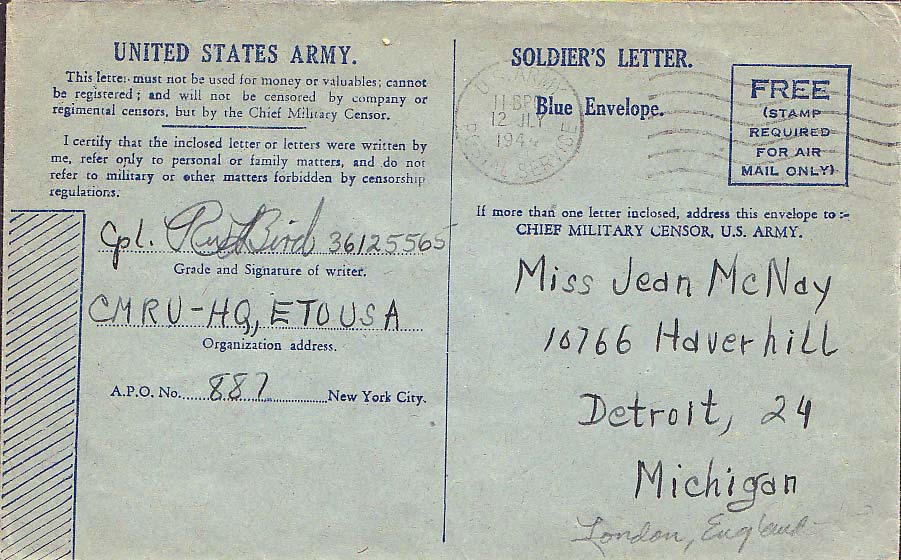 UNITED STATES ARMY.
This letter must not be used for money or valuables; cannot
be registered; and will not be censored by company or
regimental censors, but by the Chief Military Censor.
I certify that the inclosed letter or letters were written by
me, refer only to personal or family matters, and do not
refer to military or other matters forbidden by censorship
regulations.
Cpl. Bird 36125565
Grade and Signature of writer.
CMRU-HQ, ETOUSA
Organization address.
A.P.O. No. 887 New York City.
SOLDIER'S LETTER.
Blue Envelope.
U.S. ARMY
11 30PM
12 JLY
1944
POSTAL SERVICE
FREE
(STAMP
REQUIRED
FOR AIR
MAIL ONLY)
If more than one letter inclosed, address this envelope to :-
CHIEF MILITARY CENSOR, U.S. ARMY.
Miss Jean McNay
10766 Haverhill
Detroit, 24
Michigan
London, England